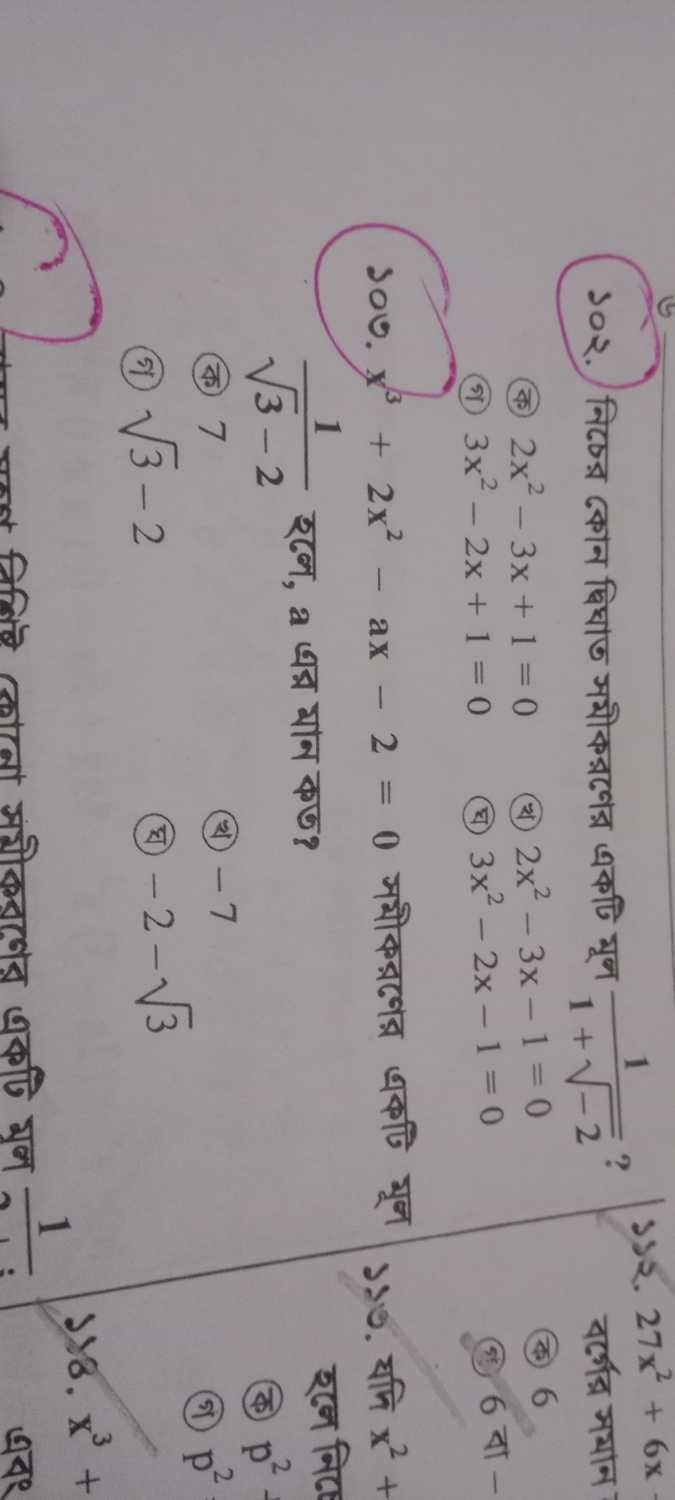 ১০২. নিচের কোন দ্বিঘাত সমীকরণের একটি মূল 1/(1 + √−2) ?
ক 2x² − 3x + 1 = 0 খ 2x² − 3x − 1 = 0
গ 3x² − 2x + 1 = 0 ঘ 3x² − 2x − 1 = 0
১০৩. x³ + 2x² − ax − 2 = 0 সমীকরণের একটি মূল
1/(√3 − 2) হলে, a এর মান কত?
ক 7 খ − 7
গ √3 − 2 ঘ − 2 − √3
কোনো সমীকরণের একটি মূল
১১২. 27x² + 6x
বর্গের সমান
ক 6
গ 6 বা −
১১৩. যদি x² +
হলে
ক p²
গ p²
১১৪. x³ +
এবং